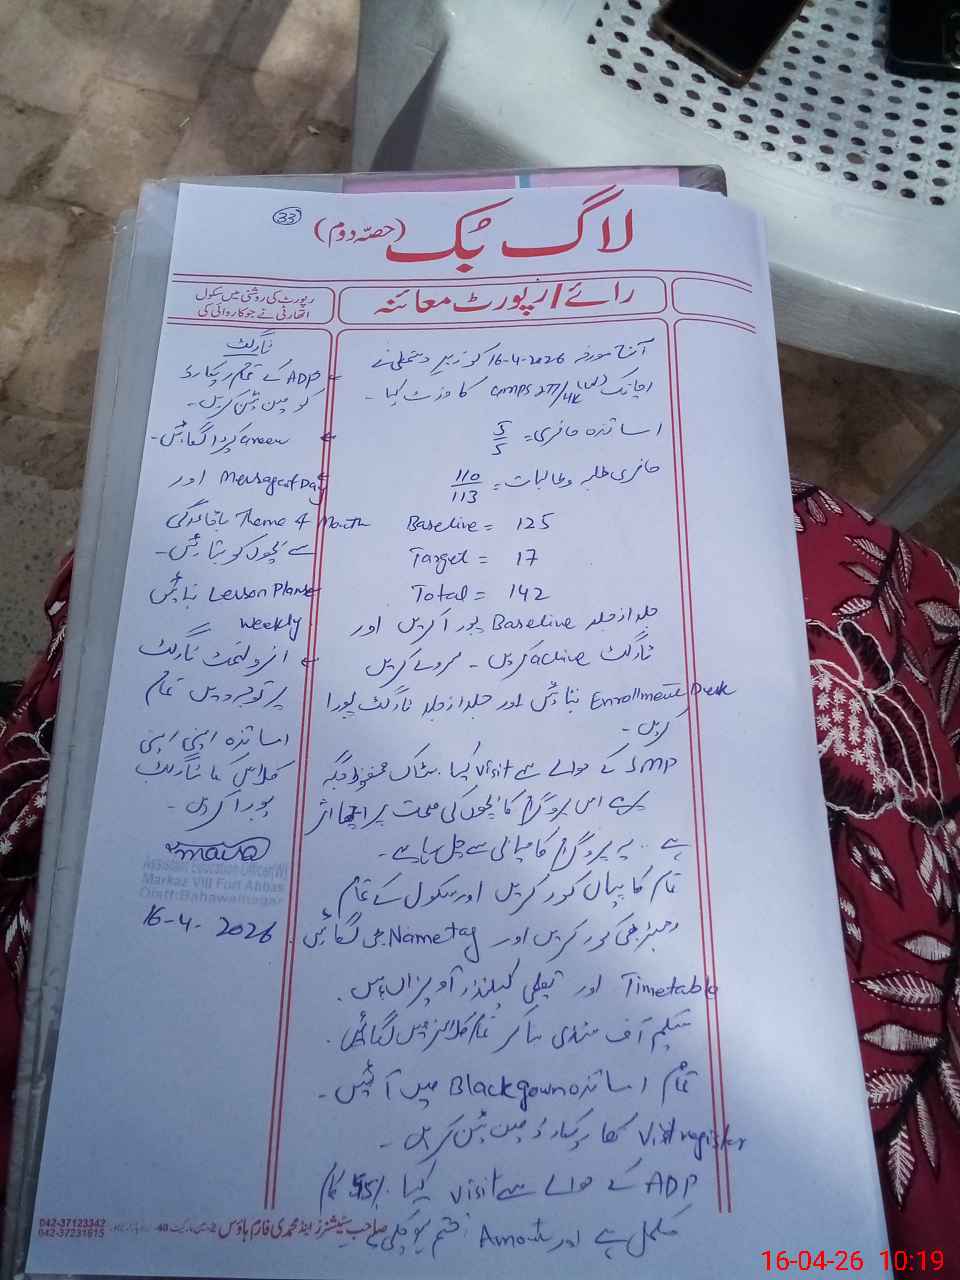 33
لاگ بُک (حصّہ دوم)
رائے / رپورٹ معائنہ
رپورٹ کی روشنی میں سکول
اتھارٹی نے جو کاروائی کی
آج مورخہ 16-4-2026 کو زیر دستخطی نے
اچانک GMPS 277/HR کا وزٹ کیا۔
اساتذہ حاضری = 5/5
حاضری طلبہ و طالبات = 110/113
Baseline = 125
Target = 17
Total = 142
جلد از جلد Baseline پورا کریں اور
ٹارگٹ achive کریں۔ سروے کریں
Enrollment Desk بنائیں اور جلد از جلد ٹارگٹ پورا
کریں۔
SMP کے حوالے سے visit کیا. سٹاک محفوظ جگہ
ہے اس پروگرام کا بچوں کی صحت پر اچھا اثر
ہے.. یہ پروگرام کامیابی سے چل رہا ہے۔
تمام کاپیاں کور کریں اور سکول کے تمام
رجسٹر بھی کور کریں اور Nametag بھی لگائیں.
Timetable اور تعلیمی کیلنڈر آویزاں ہیں.
سکیم آف سٹڈی بنا کر تمام کلاسز میں لگائیں.
تمام اساتذہ Blackgown میں آئیں۔
Visit register کا ریکارڈ مین ٹین کریں۔
ADP کے حوالے سے visit کیا. 95% کام
مکمل ہے اور Amount ختم ہو چکی ہے
ٹارگٹ
ADP کے تمام ریکارڈ
کو مین ٹین کریں۔
Green پردا لگائیں۔
Message of Day اور
Theme of Month باقاعدگی
سے بچوں کو بتائیں۔
Lesson Plans بنائیں
weekly.
انرولمنٹ ٹارگٹ
پر توجہ دیں تمام
اساتذہ اپنی اپنی
کلاس کا ٹارگٹ
پورا کریں۔
Assistant Education Officer(W)
Markaz VIII Fort Abbas
Distt: Bahawalnagar
16-4-2026
042-37123342
042-37231615
صاحب سٹیشنرز اینڈ محمدی فارم ہاؤس
16-04-26 10:19